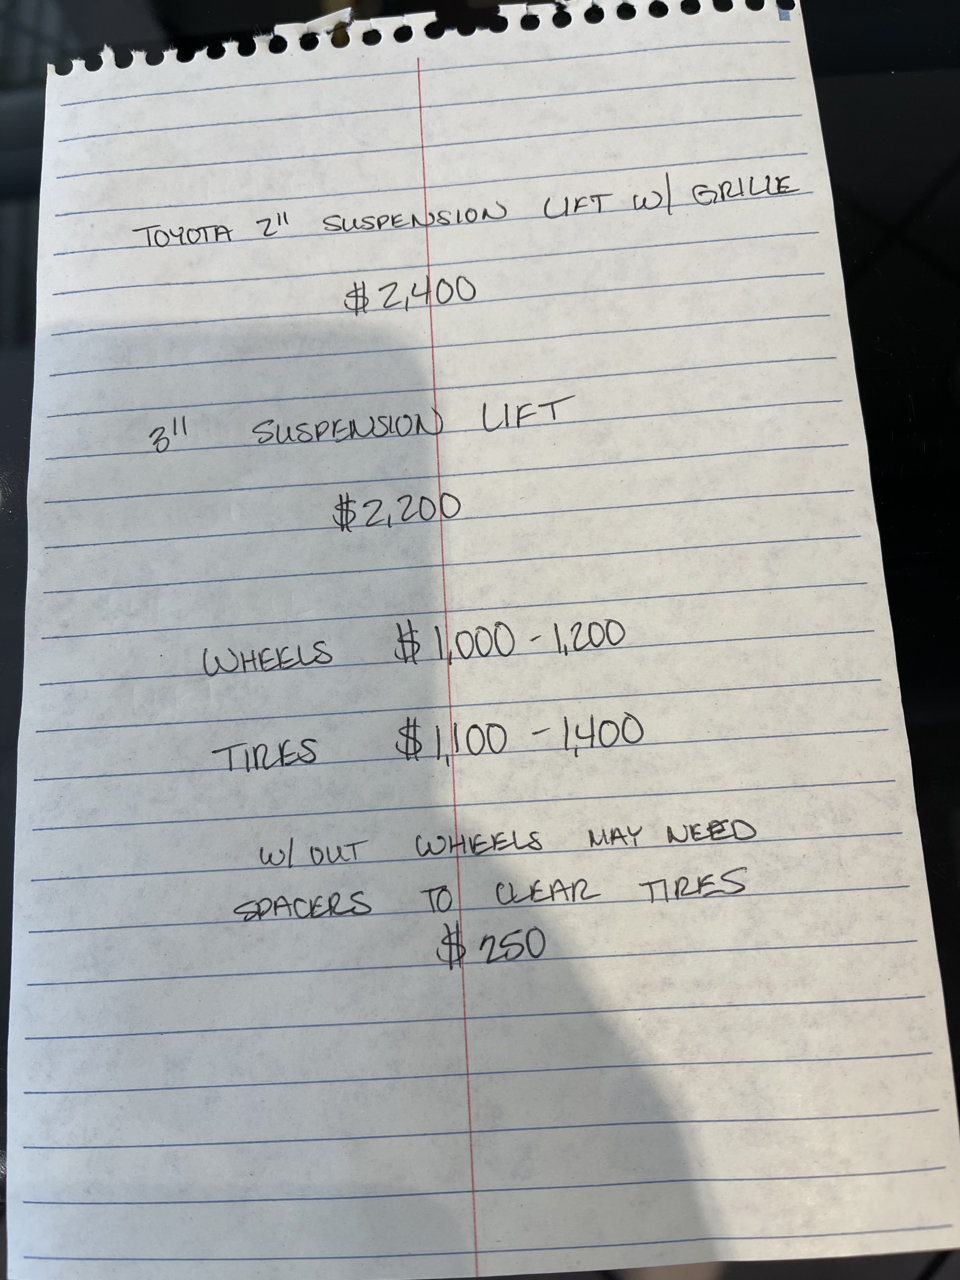 TOYOTA 2" SUSPENSION LIFT W/ GRILLE
$2,400
3" SUSPENSION LIFT
$2,200
WHEELS $1,000 - 1,200
TIRES $1,100 - 1,400
W/OUT WHEELS MAY NEED
SPACERS TO CLEAR TIRES
$250